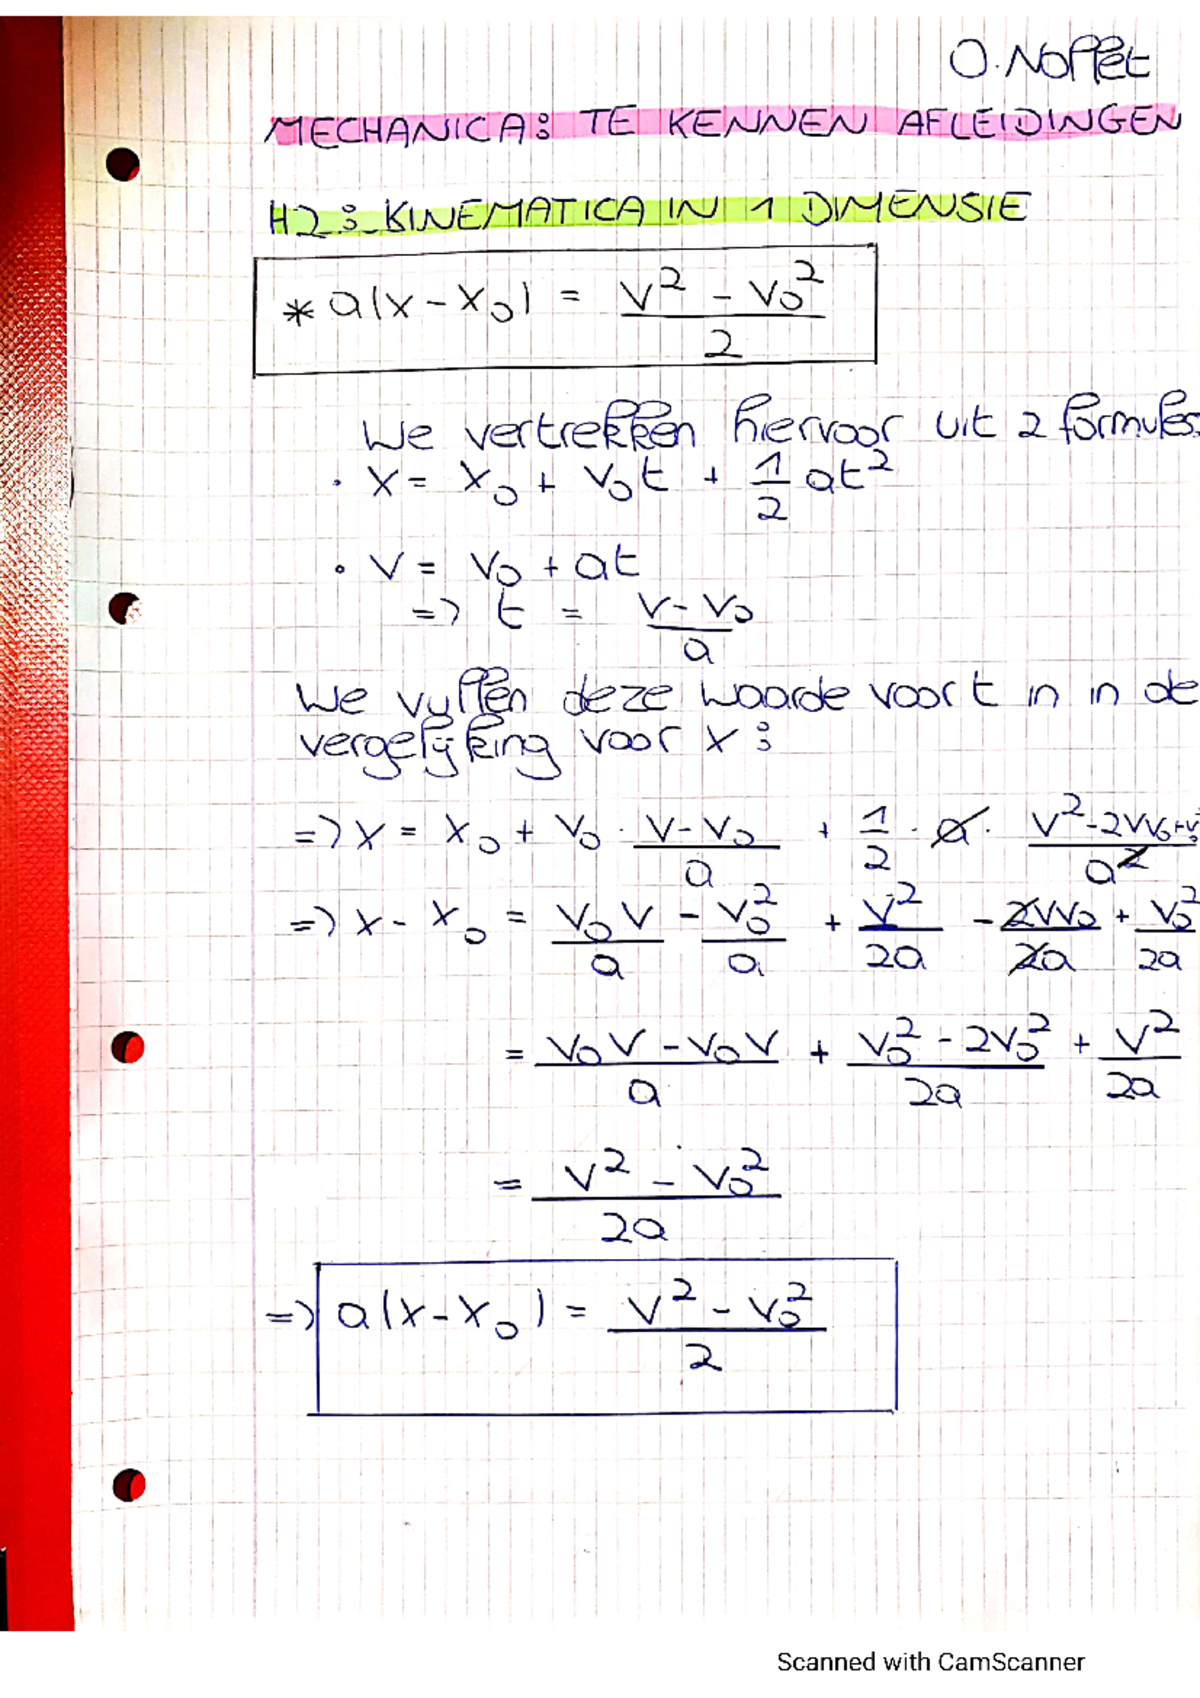 O. Noffet
MECHANICA: TE KENNEN AFLEIDINGEN
H2: KINEMATICA IN 1 DIMENSIE
* a(x - x₀) = (v² - v₀²)/2
We vertrekken hiervoor uit 2 formules:
• x = x₀ + v₀t + 1/2 at²
• v = v₀ + at
=> t = (v - v₀)/a
We vullen deze waarde voor t in in de
vergelijking voor x:
=> x = x₀ + v₀ · (v - v₀)/a + 1/2 · a · (v² - 2vv₀ + v₀²)/a²
=> x - x₀ = v₀v/a - v₀²/a + v²/2a - 2vv₀/2a + v₀²/2a
= (v₀v - v₀v)/a + (v₀² - 2v₀²)/2a + v²/2a
= (v² - v₀²)/2a
=> a(x - x₀) = (v² - v₀²)/2
Scanned with CamScanner